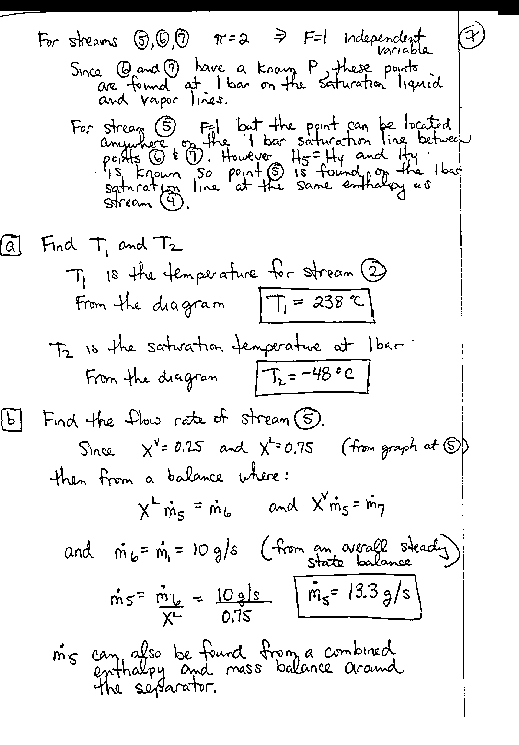 For streams ⑤,⑥,⑦ π=2 ⇒ F=1 independent variable
⑦
Since ⑥ and ⑦ have a known P, these points
are found at 1 bar on the saturation liquid
and vapor lines.
For stream ⑤ F=1 but the point can be located
anywhere on the 1 bar saturation line between
points ⑥ & ⑦. However H5=H4 and H4
is known so point ⑤ is found on the 1 bar
saturation line at the same enthalpy as
stream ④.
a Find T1 and T2
T1 is the temperature for stream ②
From the diagram T1 = 238 °C
T2 is the saturation temperature at 1 bar.
From the diagram T2 = -48 °C
b Find the flow rate of stream ⑤.
Since X^V = 0.25 and X^L = 0.75 (from graph at ⑤)
then from a balance where:
X^L ṁ5 = ṁ6 and X^V ṁ5 = ṁ7
and ṁ6 = ṁ1 = 10 g/s (from an overall steady state balance)
ṁ5 = ṁ6/X^L = 10 g/s / 0.75 ṁ5 = 13.3 g/s
ṁ5 can also be found from a combined
enthalpy and mass balance around
the separator.